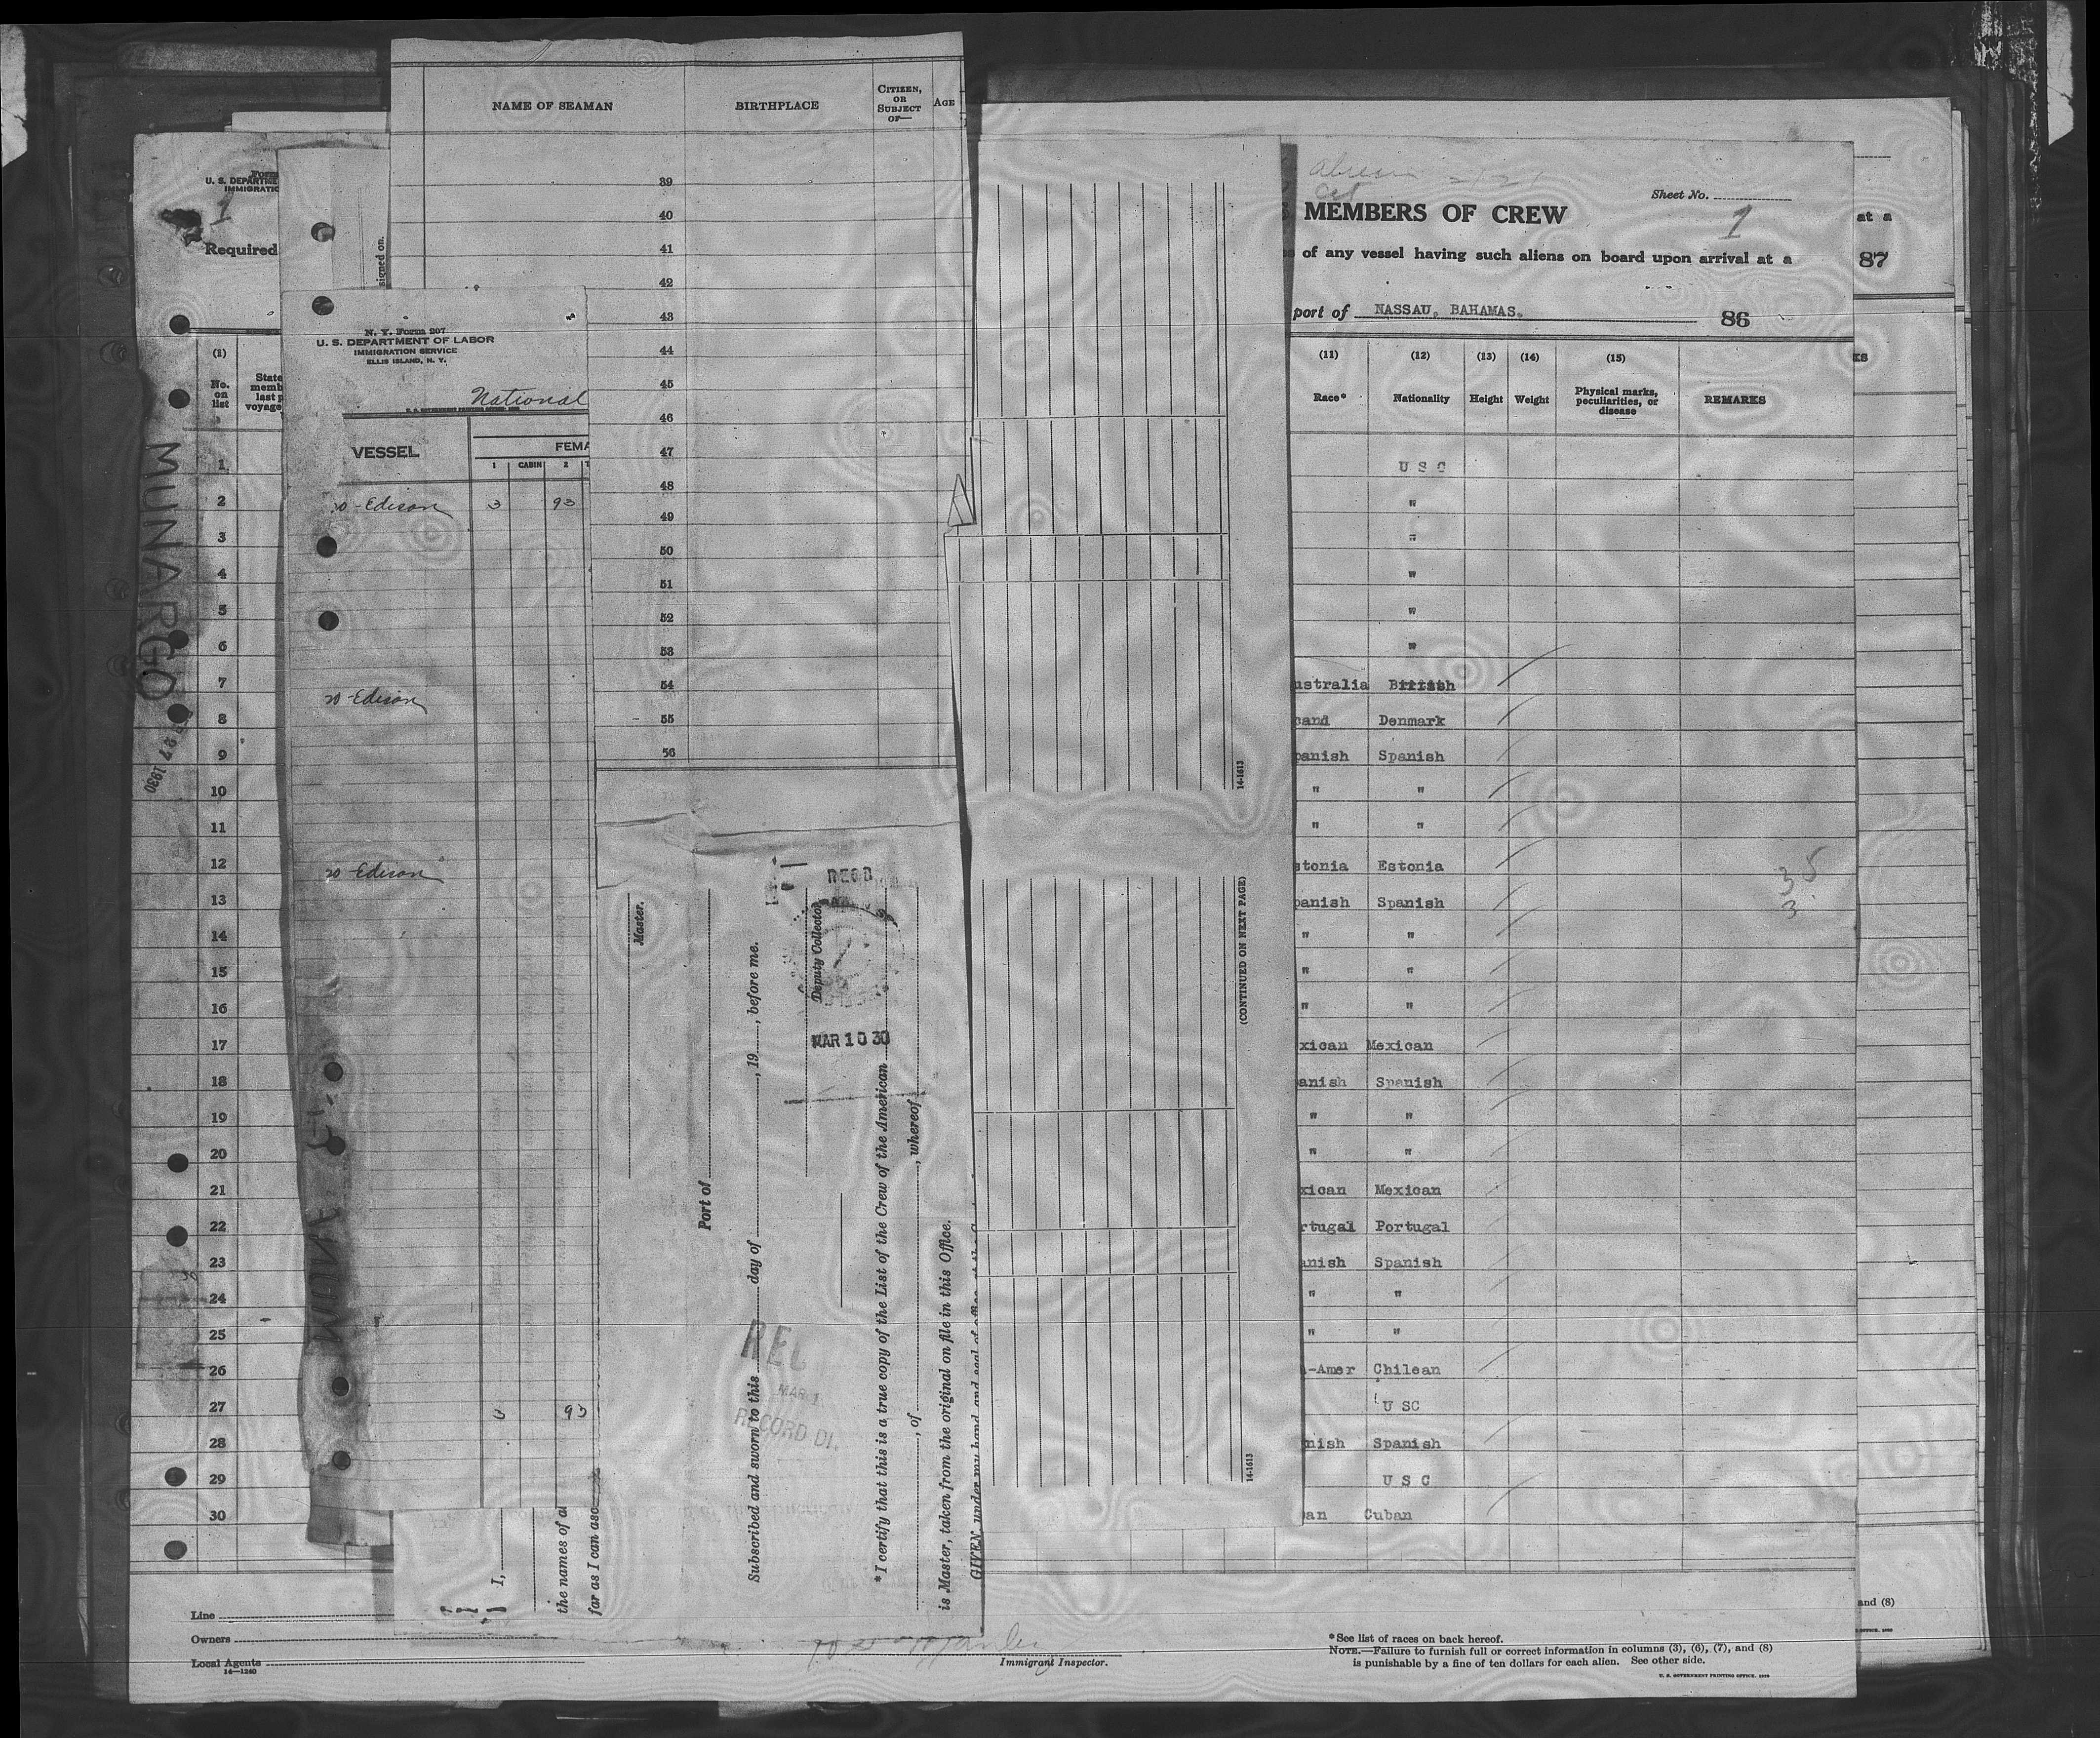 NAME OF SEAMAN
BIRTHPLACE
CITIZEN, OR SUBJECT OF—
AGE
39
40
41
42
43
44
45
46
47
48
49
50
51
52
53
54
55
56
U. S. DEPARTME
IMMIGRATIO
1
Required
signed on.
(1)
No. on list
State
memb
last p
voyage
1
2
3
4
5
6
7
8
9
10
11
12
13
14
15
16
17
18
19
20
21
22
23
24
25
26
27
28
29
30
MUNARGO
27 1930
N. Y. Form 207
U. S. DEPARTMENT OF LABOR
IMMIGRATION SERVICE
ELLIS ISLAND, N. Y.
National
VESSEL
FEMA
1 CABIN 2
Edison 3 93
Edison
Edison
3 93
Master.
Port of
Subscribed and sworn to this day of , 19 , before me.
Deputy Collector
REC'D
MAR 10 30
REL
MAR 1
RECORD DI.
* I certify that this is a true copy of the List of the Crew of the American
, of , whereof
is Master, taken from the original on file in this Office.
GIVEN under my hand and seal of office
I,
the names of al
far as I can asc
14-1613
(CONTINUED ON NEXT PAGE)
14-1613
Sheet No. 1
MEMBERS OF CREW
of any vessel having such aliens on board upon arrival at a
port of NASSAU, BAHAMAS.
86
at a
87
(11) (12) (13) (14) (15)
Race* Nationality Height Weight Physical marks, peculiarities, or disease REMARKS
U S C
"
"
"
"
"
ustralia British
cand Denmark
panish Spanish
" "
" "
stonia Estonia
35
panish Spanish
3
" "
" "
" "
xican Mexican
anish Spanish
" "
" "
xican Mexican
rtugal Portugal
anish Spanish
" "
" "
-Amer Chilean
U SC
nish Spanish
U S C
an Cuban
Line
Owners
Local Agents
14—1240
Immigrant Inspector.
* See list of races on back hereof.
NOTE.—Failure to furnish full or correct information in columns (3), (6), (7), and (8)
is punishable by a fine of ten dollars for each alien. See other side.
U. S. GOVERNMENT PRINTING OFFICE, 1929
and (8)